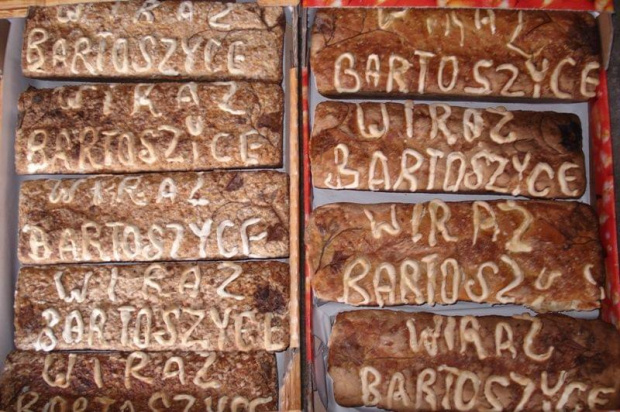 WIRAŻ
BARTOSZYCE
WIRAŻ
BARTOSZYCE
WIRAŻ
BARTOSZYCE
WIRAŻ
BARTOSZYCE
WIRAŻ
BARTOSZYCE
WIRAŻ
BARTOSZYCE
WIRAŻ
BARTOSZYCE
WIRAŻ
BARTOSZ
WIRAŻ
BARTOSZYCE